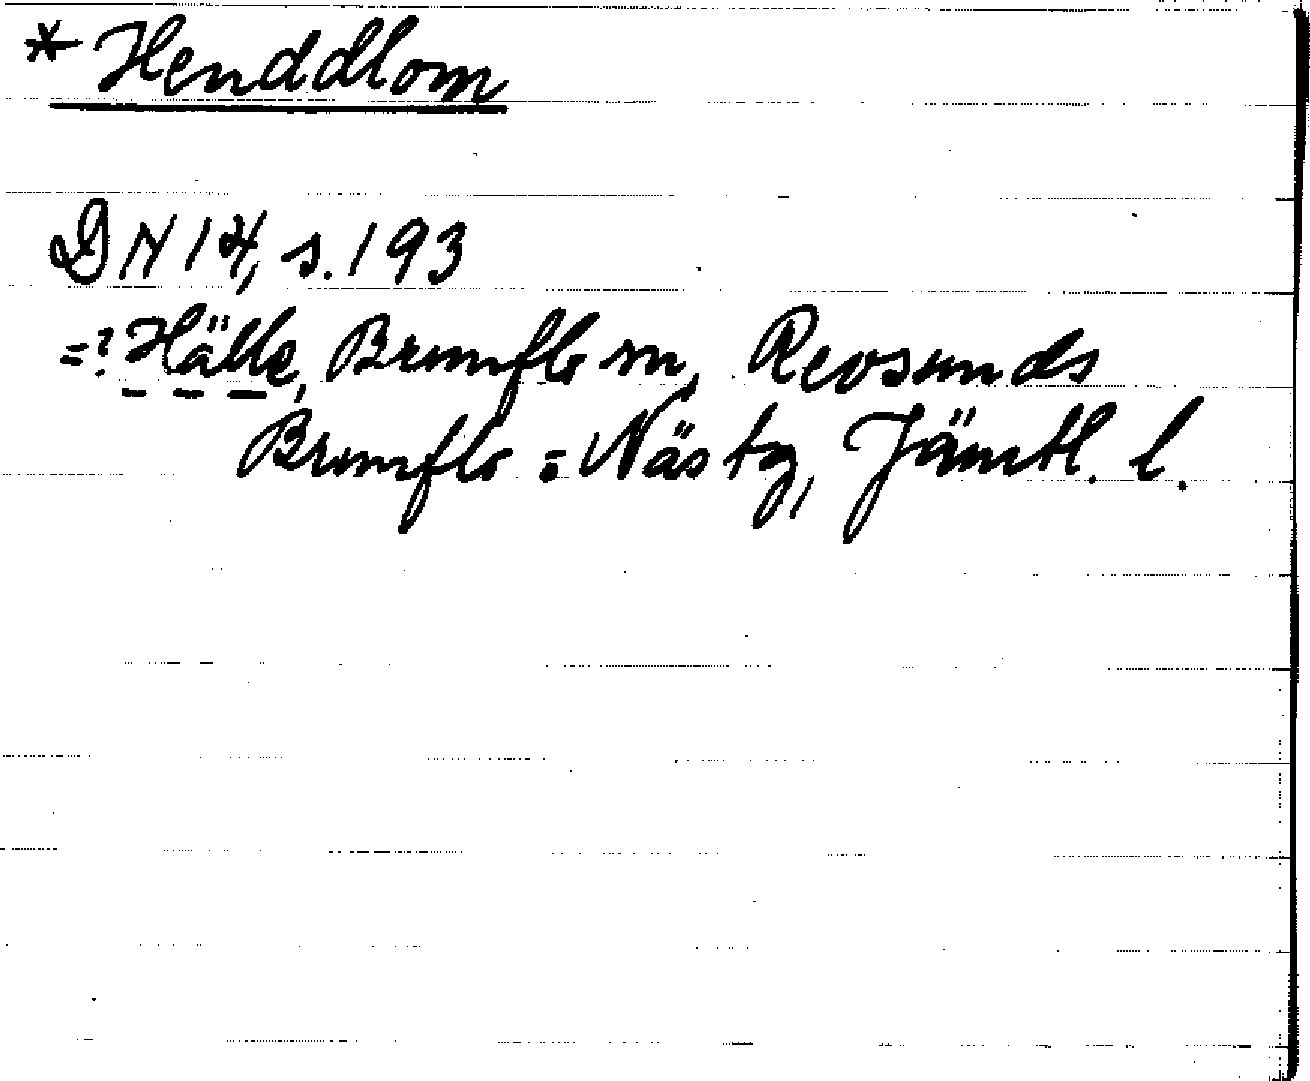 * Henddlom
DN 14, s. 193
=? Hälle, Brunflo sn, Revsunds
Brunflo o Näs tg, Jämtl. l.